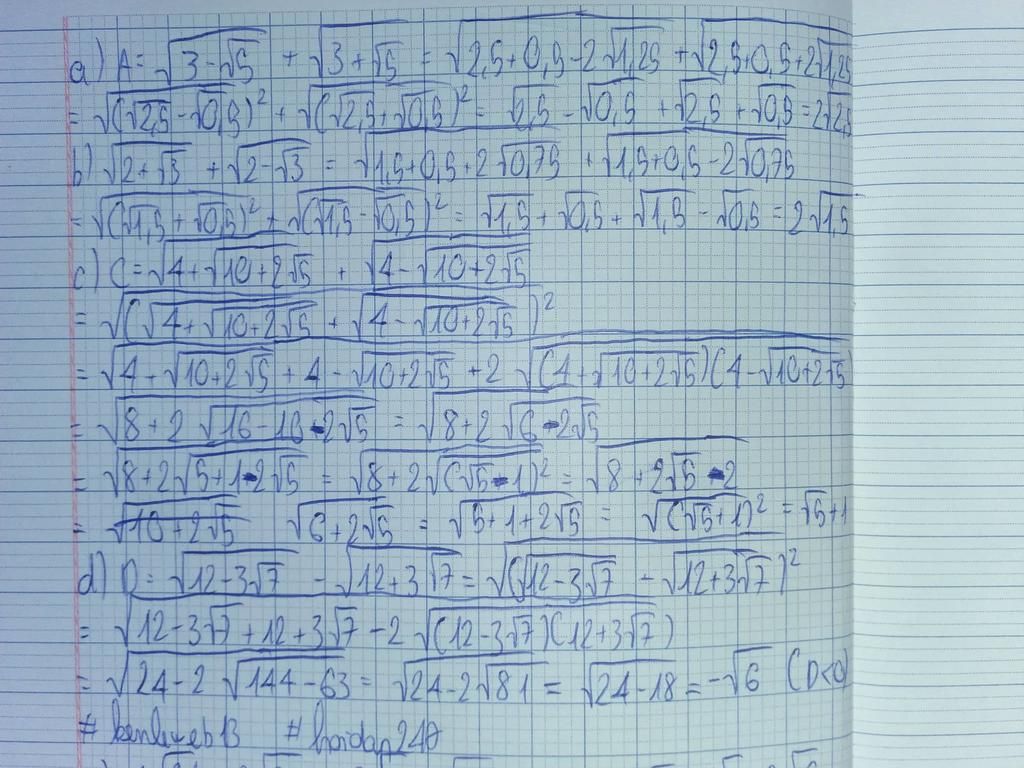 a) A = √(3 - √5) + √(3 + √5) = √(2,5 + 0,5 - 2√1,25) + √(2,5 + 0,5 + 2√1,25)
= √((√2,5 - √0,5)²) + √((√2,5 + √0,5)²) = √2,5 - √0,5 + √2,5 + √0,5 = 2√2,5
b) √(2 + √3) + √(2 - √3) = √(1,5 + 0,5 + 2√0,75) + √(1,5 + 0,5 - 2√0,75)
= √((√1,5 + √0,5)²) + √((√1,5 - √0,5)²) = √1,5 + √0,5 + √1,5 - √0,5 = 2√1,5
c) C = √(4 + √(10 + 2√5)) + √(4 - √(10 + 2√5))
= √((√(4 + √(10 + 2√5)) + √(4 - √(10 + 2√5)))²)
= √(4 + √(10 + 2√5) + 4 - √(10 + 2√5) + 2√((4 + √(10 + 2√5))(4 - √(10 + 2√5))))
= √(8 + 2√(16 - 10 - 2√5)) = √(8 + 2√(6 - 2√5))
= √(8 + 2√(5 + 1 - 2√5)) = √(8 + 2√((√5 - 1)²)) = √(8 + 2√5 - 2)
= √(10 + 2√5) √(6 + 2√5) = √(5 + 1 + 2√5) = √((√5 + 1)²) = √5 + 1
d) D = √(12 - 3√7) - √(12 + 3√7) = √((√(12 - 3√7) - √(12 + 3√7))²)
= √(12 - 3√7 + 12 + 3√7 - 2√((12 - 3√7)(12 + 3√7)))
= √(24 - 2√(144 - 63)) = √(24 - 2√81) = √(24 - 18) = -√6 (D<0)